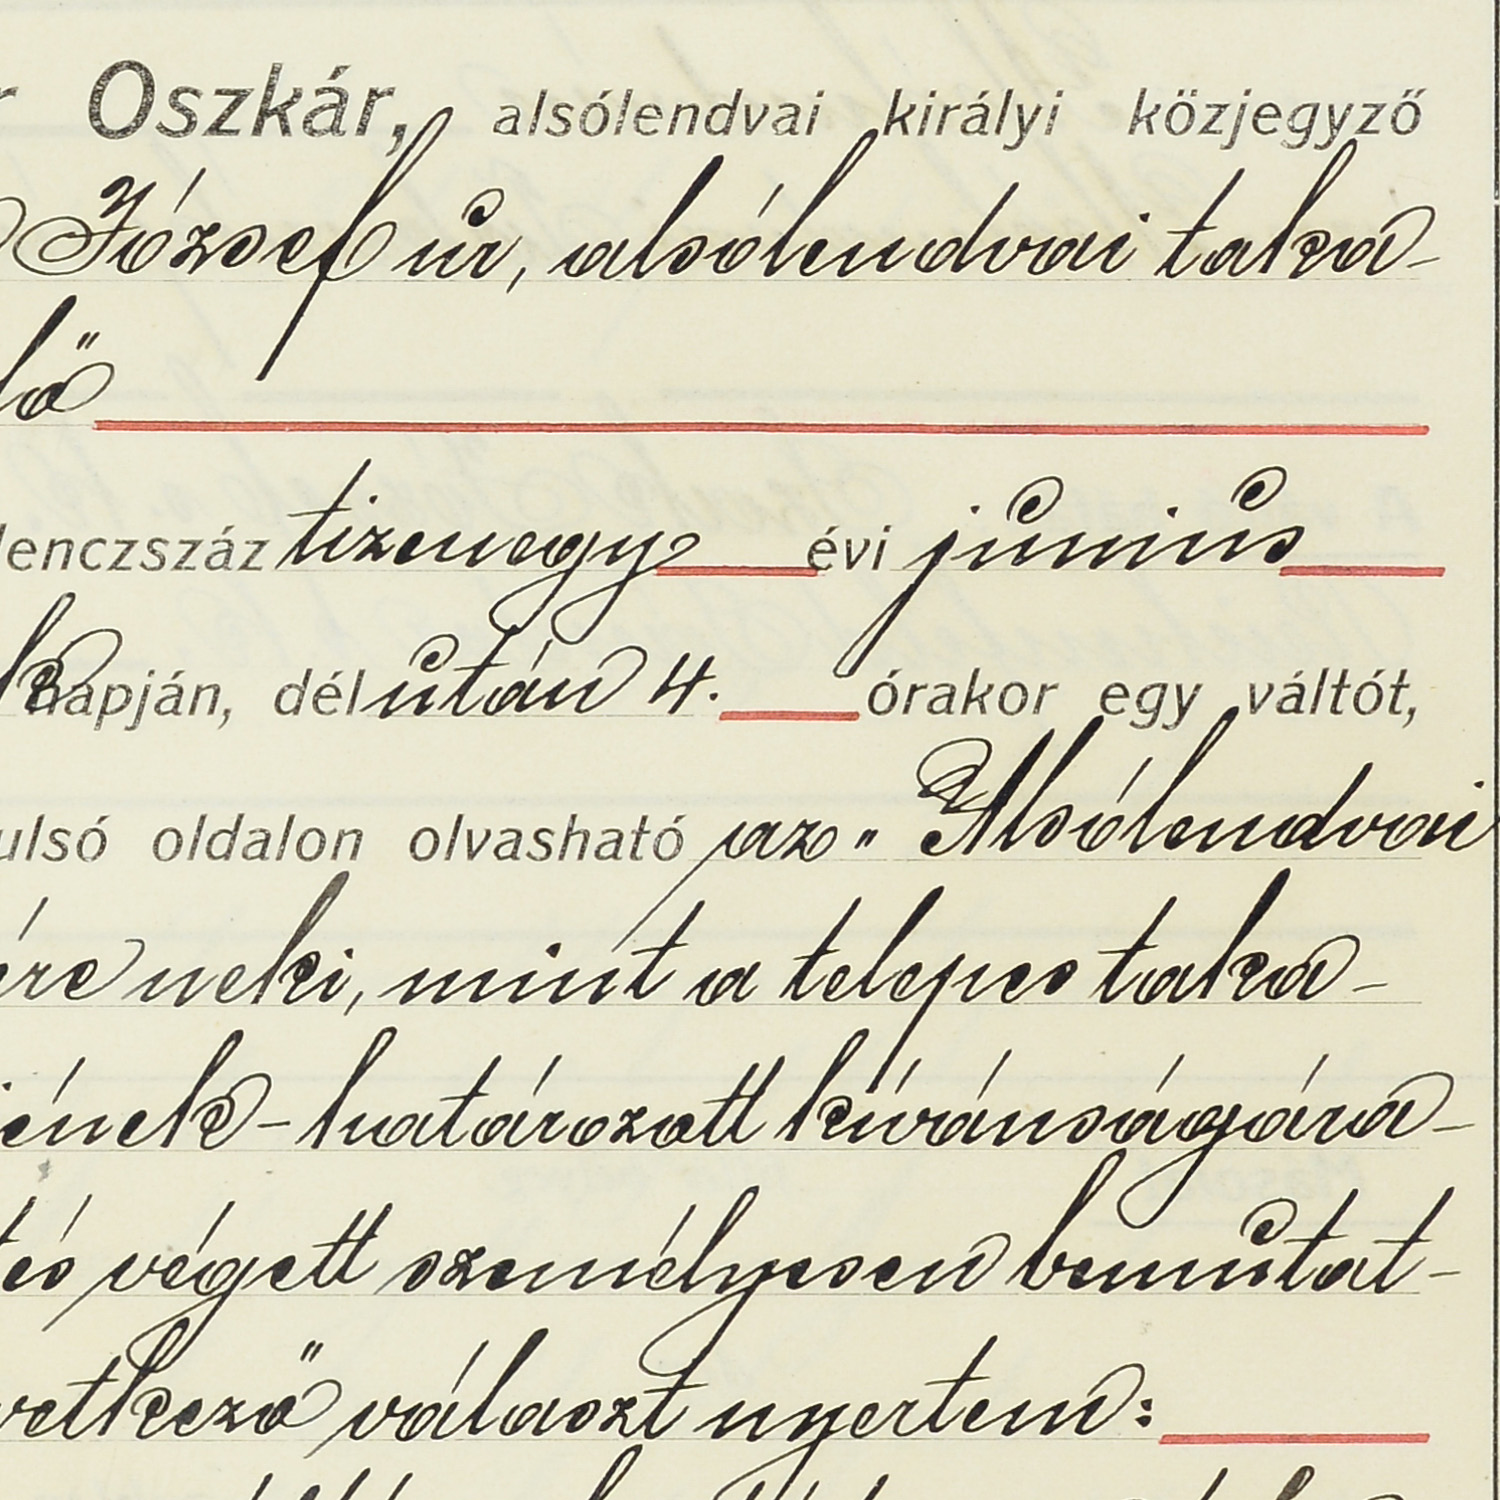 r Oszkár, alsólendvai királyi közjegyző
József úr, alsólendvai taka-
lő
lenczszáz tizenegy évi június
k napján, délután 4. órakor egy váltót,
ulsó oldalon olvasható az „Alsólendvai
ére neki, mint a telepes taka-
ének - határozott kívánságára -
tés végett személyesen bemutat-
vetkező választ nyertem: